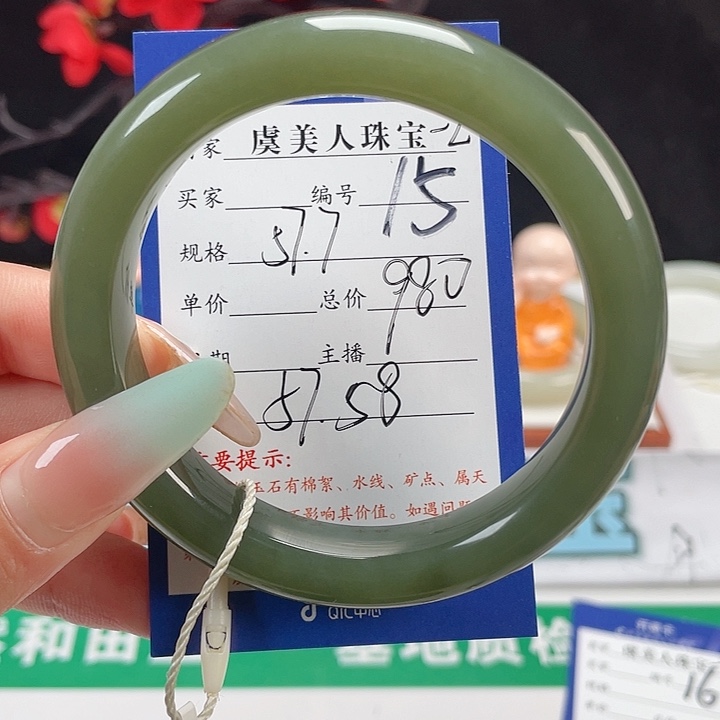 家 虞美人珠宝
买家 编号 15
规格 57.7
单价 总价 980
期 主播
57.58
要提示:
玉石有棉絮、水线、矿点、属天
不影响其价值。如遇问题
QIC中心
和田 基地质检
虞美人珠宝
16